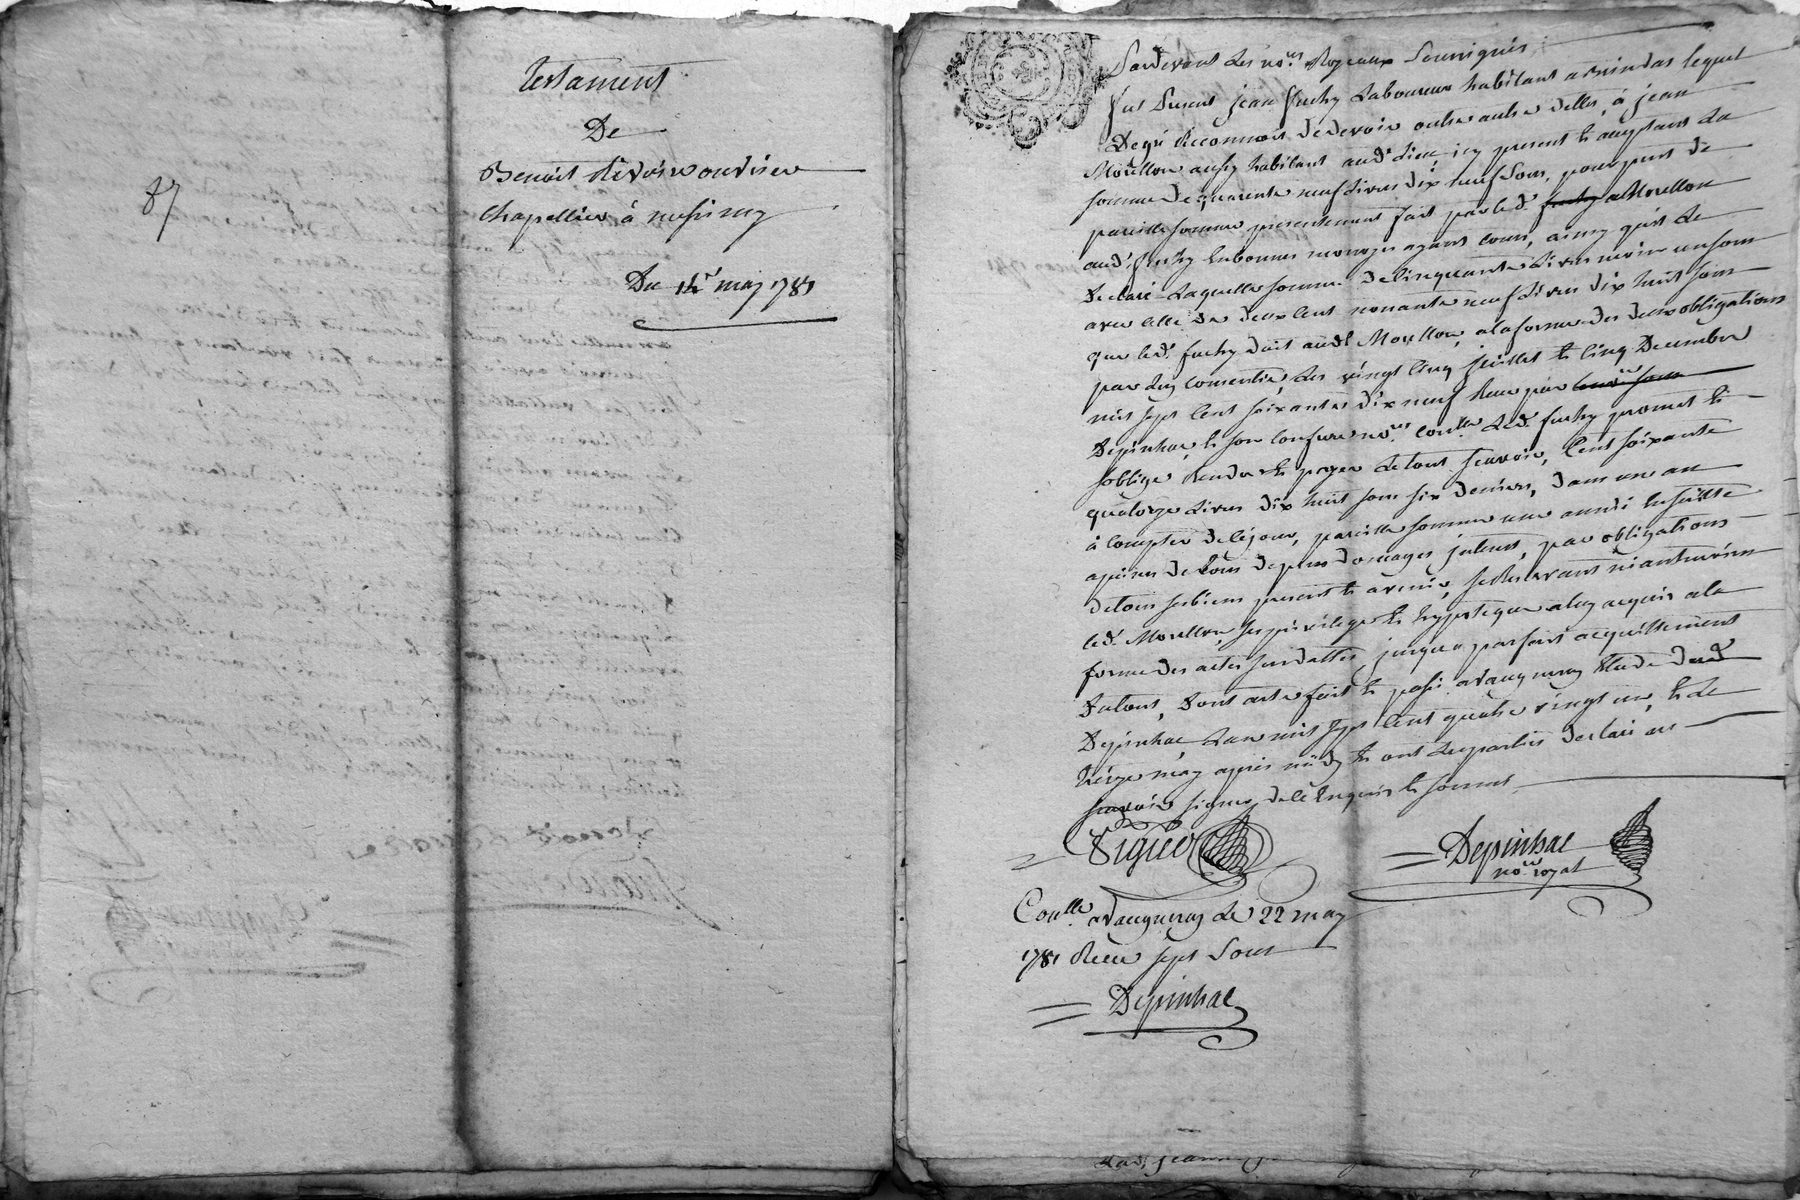 Testament
De
Benoit Rivoire ouvrier
Chapellier à messimy
Du 14e may 1781
87
Pardevant les no.res Royaux Soussignés
fut present jean fuchy Laboureur habitant a lequel
De gré Reconnoit de devoir outre autre dettes, à jean
Moullon aussy habitant aud. lieu, icy present & acceptant La
somme de quarante neuf Livres dix neuf Sous, pour prest de
pareille somme presentement fait par led. fuchy Moullon
aud. fuchy En bonnes monoyes ayant cours, ainsy qu'il Le
Declare Laquelle somme De Cinquante Livres moins un sous
avec celle De deux Cent nonante neuf Livres dix huit sous
que led. fuchy doit aud. Moullon, a la forme des deux obligations
par luy consenties, les vingt cinq juillet & cinq Decembre
mil sept Cent soixante dix neuf Reçu par
Depinhac, & son Confrere no.res Con.lle Led. fuchy promet &
soblige Rendre & payer Le tout scavoir, Cent soixante
quatorze Livres dix huit sous six deniers, dans un an
à compter De ce jour, pareille somme une année Ensuitte
a peines De tous depens domages interest, par obligations
de tous ses biens present & avenir, se Reservant neantmoins
led. Moullon, ses privilege & hypoteque a luy acquis a la
forme des actes susdattés, jusqu'a parfait acquittement
Du tout, Dont acte fait & passé a Vaugneray Etude dud.
Depinhac Lan mil sept Cent quatre vingt un, & Le
treize may apres midy & ont Les parties declaré ne
scavoir signer de ce Enquis & sommés
Viguer
Depinhac
no.re royal
Con.lle a Vaugneray Le 22 may
1781 Reçu sept Sous
Depinhac